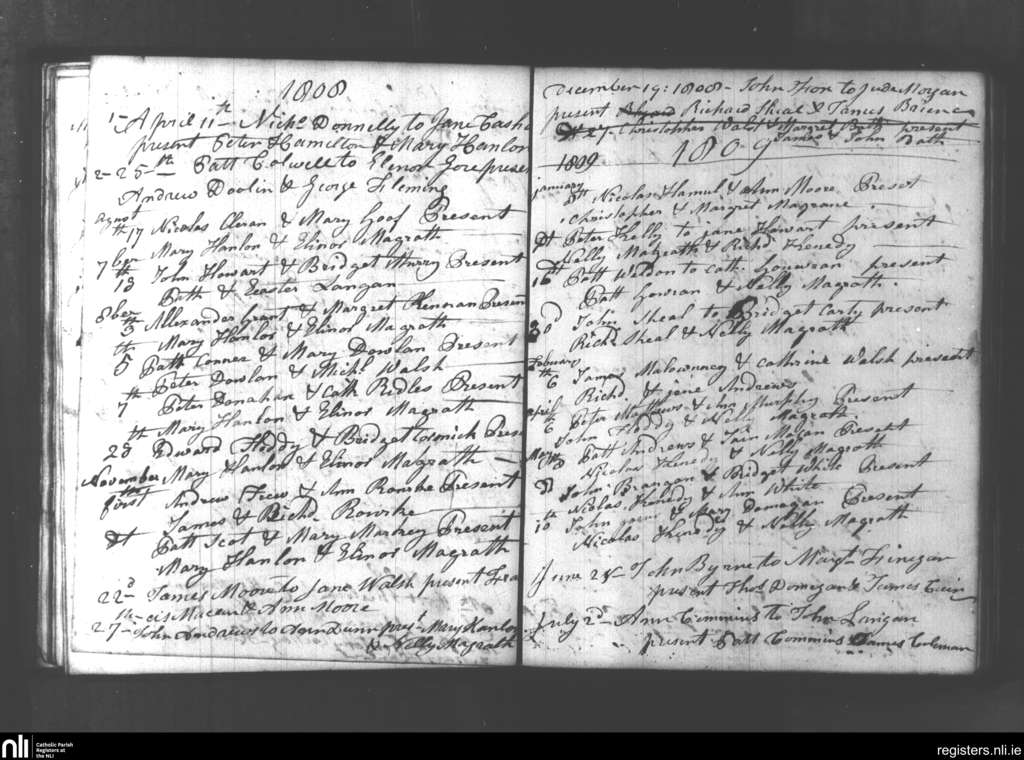 1808
April 11th Nichs Donnelly to Jane Cash
present Peter Hamelton & Mary Hanlon
2- 25th Patt Colwell to Elinor Gore presen
Andrew Doolin & George Fleming
17 Nicolas Cleran & Mary Goof Present
Mary Hanlon & Elinor Magrath
7ber
th
13 John Howart & Bridget Murry Present
Path & Easter Langan
8ber
th
5 Allexander Grant & Margret Keneran Presen
Mary Hanlon & Elinor Magrath
th
5 Path Conner & Mary Dowlan Present
Peter Dowlon & Michl Walsh
th
7 Peter Donahan & Cath Ridles Present
Mary Hanlon & Elinor Magrath
th
23 Edward Floddy & Bridget Cormick Pres
Mary Hanlon & Elinor Magrath
November
first Andrew & Ann Rourke Present
James & Richd Rowrke
Dt Patt Scot & Mary Markey Present
Mary Hanlon & Elinor Magrath
22d James Moore to Jane Walsh present Fra
cis & Ann Moore
27th John Andrews to Ann Dunn pres- Mary Hanlon
& Nelly Magrath
December 19: 1808 - John to Jude Morgan
present Richard Sheal & James Brien
Dt 27 Christopher Walsh & Margret Bath present
James & John Bath
1809
1809
january
8th Nicolas Hamul & Ann Moore Present
Christopher & Margret Magrane
Dt Peter Kelly to jane Howart present
Nelly Magrath & Richd Kenedy
16th Patt Weldon to cath. present
Patt Gowran & Nelly Magrath.
30 John Sheal to Bridget Carty present
Richd Sheal & Nelly Magrath
Febuary
th
6 James Malowney & cathrine Walsh present
Richd. & jane Andrews
april
6 Peter Matthews & Ann Murphy Present
John Floddy & Nelly Magrath
May
Patt Andrews & Jain Magan Present
Nicolas Kenedy & Nelly Magrath
Dt John Brangan & Bridget White Present
Nicolas Kenedy & Ann White
10th John & Mary Donagan Present
Nicolas Kenedy & Nelly Magrath
June 28 John Byrne to Margt Finegan
present Thos Donegan & James
July 2d - Ann Cummins to Thos Langan
present Patt Commins James Coleman
nli
Catholic Parish
Registers at
the NLI
registers.nli.ie